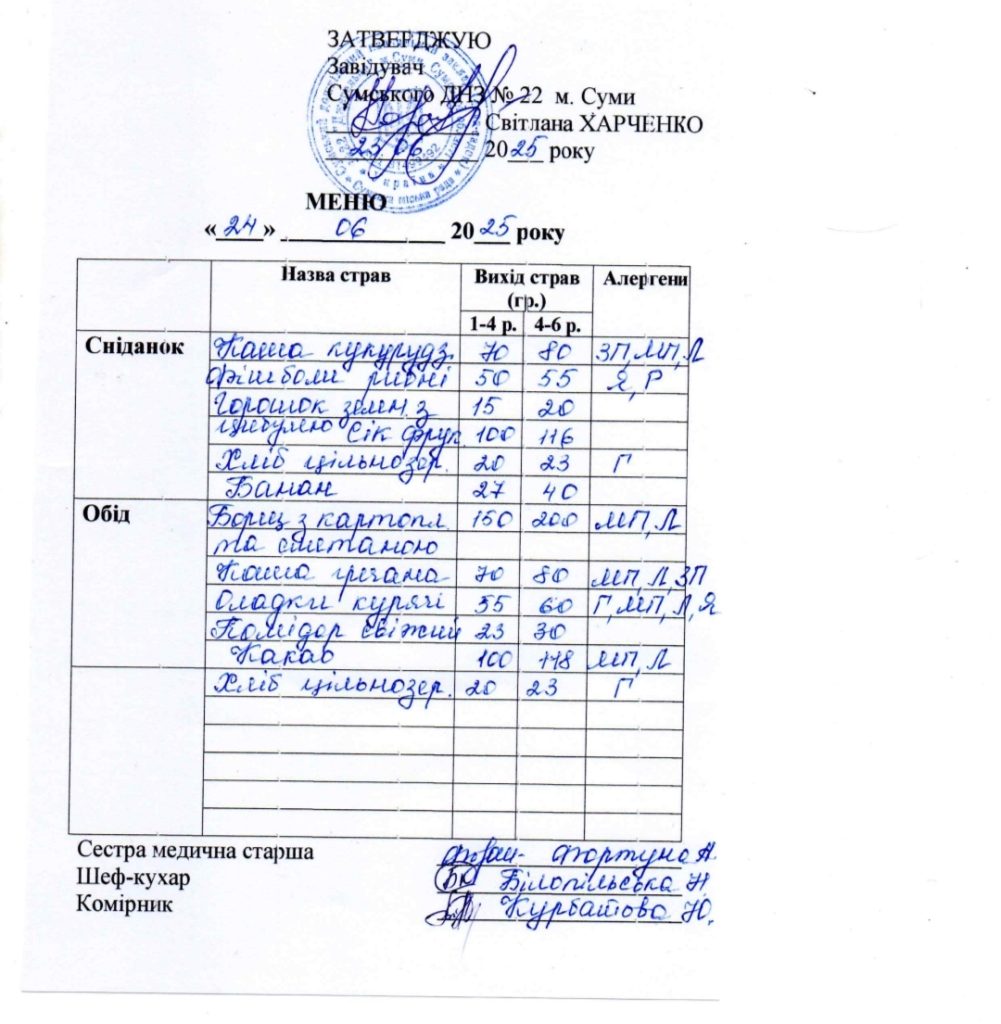 ЗАТВЕРДЖУЮ
Завідувач
Сумського ДНЗ № 22 м. Суми
Світлана ХАРЧЕНКО
23 06 2025 року
МЕНЮ
«24» 06 2025 року
Назва страв Вихід страв (гр.) Алергени
1-4 р. 4-6 р.
Сніданок Каша кукурудз. 70 80 ЗП, МП, Л
Фішболи рибні 50 55 Я, Р
Горошок зелен. з 15 20
цибулею Сік фрук. 100 116
Хліб цільнозер. 20 23 Г
Банан 27 40
Обід Борщ з картопл. 150 200 МП, Л
та сметаною
Каша гречана 70 80 МП, Л, ЗП
Оладки курячі 55 60 Г, МП, Л, Я
Помідор свіжий 23 30
Какао 100 118 МП, Л
Хліб цільнозер. 20 23 Г
Сестра медична старша Фортуна А.
Шеф-кухар Білопільська Н.
Комірник Курбатова Ю.